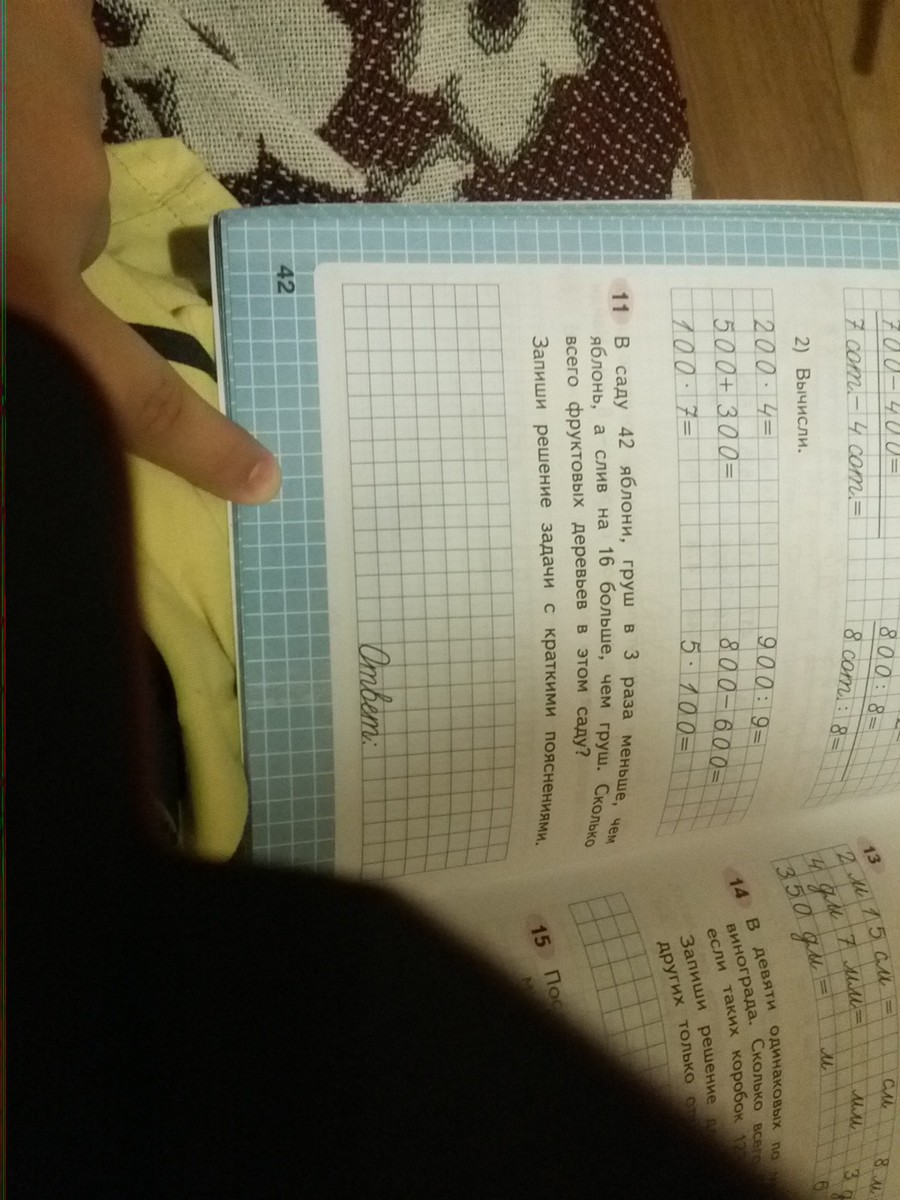 700-400=
7 сот.-4 сот.=
800:8=
8 сот.:8=
2) Вычисли.
200·4=
900:9=
500+300=
800-600=
100·7=
5·100=
11 В саду 42 яблони, груш в 3 раза меньше, чем
яблонь, а слив на 16 больше, чем груш. Сколько
всего фруктовых деревьев в этом саду?
Запиши решение задачи с краткими пояснениями.
Ответ:
42
13
2 м 15 см = см
4 дм 7 мм= мм
350 дм = м
14 В девяти одинаковых по
винограда. Сколько всего
если таких коробок
Запиши решение
других только
15